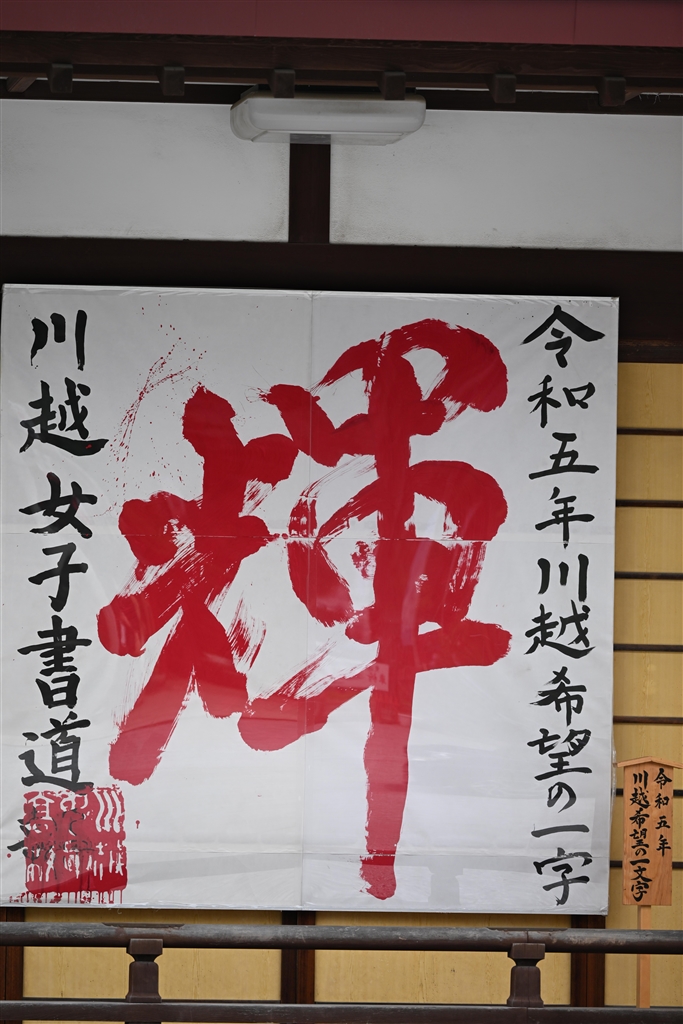 令和五年川越希望の一字
輝
川越女子書道部
令和五年
川越希望の一文字